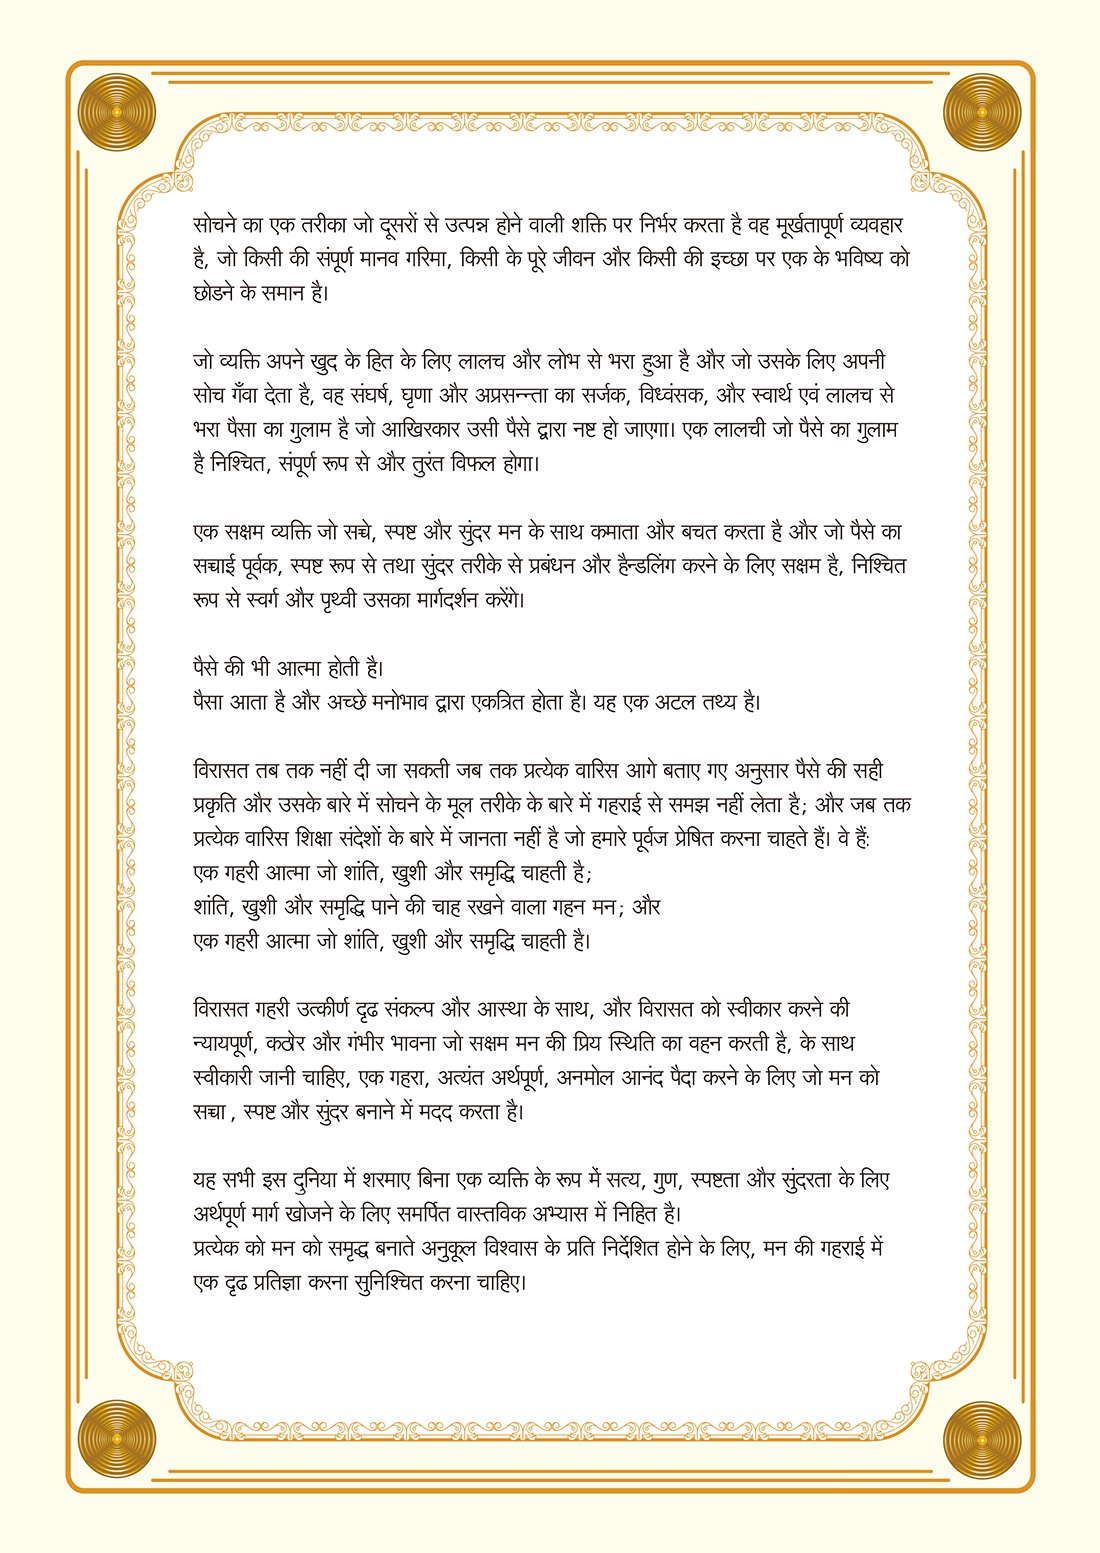 सोचने का एक तरीका जो दूसरों से उत्पन्न होने वाली शक्ति पर निर्भर करता है वह मूर्खतापूर्ण व्यवहार
है, जो किसी की संपूर्ण मानव गरिमा, किसी के पूरे जीवन और किसी की इच्छा पर एक के भविष्य को
छोडने के समान है।
जो व्यक्ति अपने खुद के हित के लिए लालच और लोभ से भरा हुआ है और जो उसके लिए अपनी
सोच गँवा देता है, वह संघर्ष, घृणा और अप्रसन्न्ता का सर्जक, विध्वंसक, और स्वार्थ एवं लालच से
भरा पैसा का गुलाम है जो आखिरकार उसी पैसे द्वारा नष्ट हो जाएगा। एक लालची जो पैसे का गुलाम
है निश्चित, संपूर्ण रूप से और तुरंत विफल होगा।
एक सक्षम व्यक्ति जो सच्चे, स्पष्ट और सुंदर मन के साथ कमाता और बचत करता है और जो पैसे का
सच्चाई पूर्वक, स्पष्ट रूप से तथा सुंदर तरीके से प्रबंधन और हैन्डलिंग करने के लिए सक्षम है, निश्चित
रूप से स्वर्ग और पृथ्वी उसका मार्गदर्शन करेंगे।
पैसे की भी आत्मा होती है।
पैसा आता है और अच्छे मनोभाव द्वारा एकत्रित होता है। यह एक अटल तथ्य है।
विरासत तब तक नहीं दी जा सकती जब तक प्रत्येक वारिस आगे बताए गए अनुसार पैसे की सही
प्रकृति और उसके बारे में सोचने के मूल तरीके के बारे में गहराई से समझ नहीं लेता है; और जब तक
प्रत्येक वारिस शिक्षा संदेशों के बारे में जानता नहीं है जो हमारे पूर्वज प्रेषित करना चाहते हैं। वे हैं:
एक गहरी आत्मा जो शांति, खुशी और समृद्धि चाहती है;
शांति, खुशी और समृद्धि पाने की चाह रखने वाला गहन मन; और
एक गहरी आत्मा जो शांति, खुशी और समृद्धि चाहती है।
विरासत गहरी उत्कीर्ण दृढ संकल्प और आस्था के साथ, और विरासत को स्वीकार करने की
न्यायपूर्ण, कठोर और गंभीर भावना जो सक्षम मन की प्रिय स्थिति का वहन करती है, के साथ
स्वीकारी जानी चाहिए, एक गहरा, अत्यंत अर्थपूर्ण, अनमोल आनंद पैदा करने के लिए जो मन को
सच्चा , स्पष्ट और सुंदर बनाने में मदद करता है।
यह सभी इस दुनिया में शरमाए बिना एक व्यक्ति के रूप में सत्य, गुण, स्पष्टता और सुंदरता के लिए
अर्थपूर्ण मार्ग खोजने के लिए समर्पित वास्तविक अभ्यास में निहित है।
प्रत्येक को मन को समृद्ध बनाते अनुकूल विश्वास के प्रति निर्देशित होने के लिए, मन की गहराई में
एक दृढ प्रतिज्ञा करना सुनिश्चित करना चाहिए।